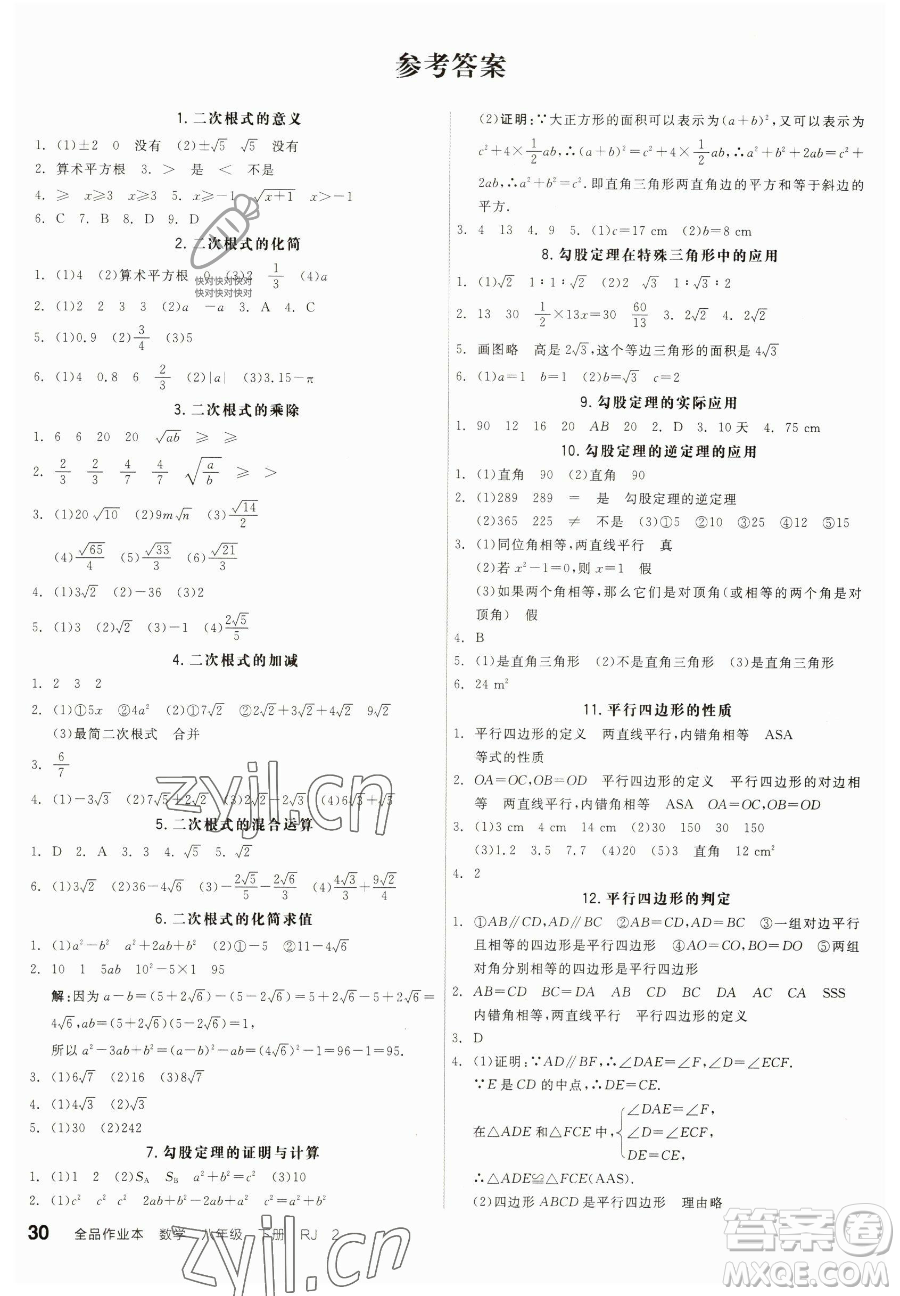 参考答案
1. 二次根式的意义
1. (1)±2 0 没有 (2)±√5 √5 没有
2. 算术平方根 3. ＞ 是 ＜ 不是
4. ≥ x≥3 x≥3 5. x≥－1 √(x+1) x＞－1
6. C 7. B 8. D 9. C
2. 二次根式的化简
1. (1)4 (2)算术平方根 0 (3)2 1/3 (4)a
2. (1)2 2 3 3 (2)a －a 3. A 4. C
5. (1)0.9 (2)3/4 (3)5
6. (1)4 0.8 6 2/3 (2)|a| (3)3.15－π
3. 二次根式的乘除
1. 6 6 20 20 √ab ≥ ≥
2. 2/3 2/3 7/4 7/4 √(a/b) ≥ ＞
3. (1)20√10 (2)9m√n (3)√14/2
(4)√65/4 (5)√33/3 (6)√21/3
4. (1)3 (2)－36 (3)2
5. (1)3√2 (3)－1 (4)2√5/5
4. 二次根式的加减
1. 2 3 2
2. (1)①5x ②4a² (2)①7√2 ②2√2+3√2+4√2 9√2
(3)最简二次根式 合并
3. 6/7
4. (1)－3√3 (2)7√5+2√2 (3)4√2 (4)6√3+√2
5. 二次根式的混合运算
1. D 2. A 3. 3 4. √5 5. √2
6. (1)3√2 (2)36－4√6 (3)2√5/5－2√6/3 (4)4√3/3 (5)9/2
6. 二次根式的化简求值
1. (1)a²－b² a²+2ab+b² (2)①－5 ②11－4√6
2. 10 1 5ab 10²－5×1 95
解:因为a－b=(5+2√6)－(5－2√6)=5+2√6－5+2√6=
4√6,ab=(5+2√6)(5－2√6)=1,
所以a²－3ab+b²=(a－b)²－ab=(4√6)²－1=96－1=95.
3. (1)16 (2)12 (3)8√7
4. (1)4√3 (2)2√3
5. (1)30 (2)242
7. 勾股定理的证明与计算
1. (1)10 (2)S_A S_B a²+b²=c² (3)10
2. (1)c² c² 2ab+c² 2ab+c² a²+b²=c²
(2)证明:∵大正方形的面积可以表示为(a+b)²,又可以表示为
c²+4×1/2ab,∴c²+4×1/2ab=(a+b)²,∴c²+2ab=a²+b²+
2ab,∴a²+b²=c².即直角三角形两直角边的平方和等于斜边的
平方.
3. 4 13 4. 9 5. (1)c=17 cm (2)b=8 cm
8. 勾股定理在特殊三角形中的应用
1. (1)√2 1∶1∶√2 (2)2 √3 1∶√3∶2
2. 13 30 1/2×13x=30 60/13 3. 2√2 4. 2√3
5. 画图略 高是2√3,这个等边三角形的面积是4√3
6. (1)a=1 b=1 (2)b=√3 c=2
9. 勾股定理的实际应用
1. 90 12 16 20 AB 20 2. D 3. 10天 4. 75 cm
10. 勾股定理的逆定理的应用
1. (1)直角 90 (2)直角 90
2. (1)289 289 = 是 勾股定理的逆定理
(2)365 225 ≠ 不是 (3)①5 ②10 ③25 ④12 ⑤15
3. (1)同位角相等,两直线平行 真
(2)若x²－1=0,则x=1 假
(3)如果两个角相等,那么它们是对顶角(或相等的两个角是对
顶角) 假
4. B
5. (1)是直角三角形 (2)不是直角三角形 (3)是直角三角形
6. 24 m²
11. 平行四边形的性质
1. 平行四边形的定义 两直线平行,内错角相等 ASA
等式的性质
2. OA=OC,OB=OD 平行四边形的定义 平行四边形的对边相
等 两直线平行,内错角相等 ASA OA=OC,OB=OD
3. (1)3 cm 4 cm (2)30 150 150
(3)1.2 3.5 7.7 (4)30 (5)3 直角 12 cm²
4. 2
12. 平行四边形的判定
1. ①AB∥CD,AD∥BC ②AB=CD,AD=BC ③一组对边平行
且相等的四边形是平行四边形 ④AO=CO,BO=DO ⑤两组
对角分别相等的四边形是平行四边形
2. AB=CD,AD=CB AB CD AD CB AC CA SSS
内错角相等,两直线平行 平行四边形的定义
3. D
4. (1)证明:∵AD∥BF,∴∠DAE=∠F,∠D=∠ECF.
∵E是CD的中点,∴DE=CE.
∠DAE=∠F,
在△ADE和△FCE中 ∠D=∠ECF,
DE=CE,
∴△ADE≌△FCE(AAS).
(2)四边形ABCD是平行四边形 理由略
30 全品作业本 数学 八年级 下册 RJ 2
快对快对快对
快对快对快对
zyjl.cn
zyjl.cn
答案圈
MXQE.COM